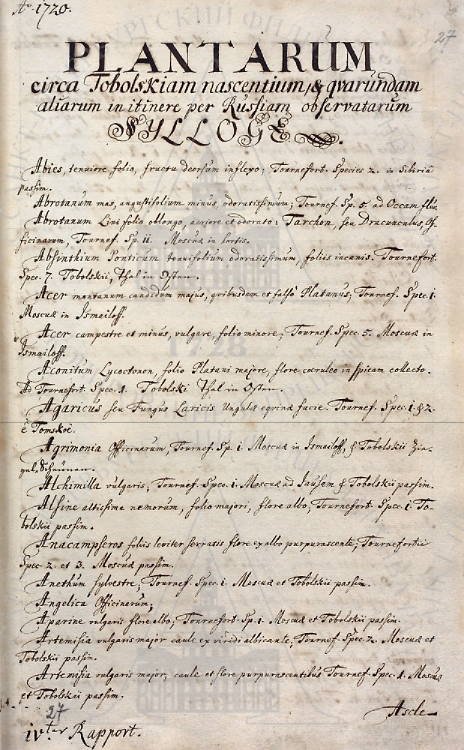 Ao. 1720.
27
PLANTARUM
circa Tobolskiam nascentium, & qvarundam
aliarum in itinere per Russiam observatarum
SYLLOGE.
Abies, tenuiore folio, fructu deorsum inflexo; Tournefort. Species 2. in Sibiria
passim.
Abrotanum mas, angustifolium minus, odoratissimum; Tournef. Sp. 5. ad Occam flu.
Abrotanum Lini folio oblongo, acriore et odorato: Tarchon, seu Dracunculus, Of-
ficinarum, Tournef. Sp. 11. Moscuæ in hortis.
Absinthium Ponticum tenuifolium odoratissimum, foliis incanis. Tournefort.
Spec. 7. Tobolskii, Thal in Ostern.
Acer montanum candidum majus, quibusdam et falso Platanus, Tournef. Spec. 1.
Moscuæ in Ismailoff.
Acer campestre et minus, vulgare, folio minore; Tournef. Spec. 5. Moscuæ in
Ismailoff.
Aconitum Lycoctonon, folio Platani majore, flore cæruleo in spicam collecto.
Ad Tournefort. Spec. 1. Tobolski Thal in Ostern.
Agaricus seu Fungus Laricis Ungulæ eqvinæ facie. Tournef. Spec. 1 & 2.
é Tomskoi.
Agrimonia Officinarum, Tournef. Sp. 1. Moscuæ in Ismailoff, & Tobolskii
Alchimilla vulgaris, Tournef. Spec. 1. Moscuæ ad & Tobolskii passim.
Alsine altissima nemorum, folio majori, flore albo, Tournefort. Spec. 1. To-
bolskii passim.
Anacampseros foliis leviter serratis flore ex albo purpurascente; Tournefortii
Spec. 2. et 3. Moscuæ passim.
Anethum sylvestre, Tournef. Spec. 1. Moscuæ et Tobolskii passim.
Angelica Officinarum;
Aparine vulgaris flore albo, Tournefort. Sp. 1. Moscuæ et Tobolskii passim.
Artemisia vulgaris major caule ex viridi albicante, Tournef. Spec. 2. Moscuæ et
Tobolskii passim.
Artemisia vulgaris major, caule et flore purpurascentibus Tournef. Spec. 1. Moscuæ
et Tobolskii passim.
Ascle-
27
ivter Rapport.